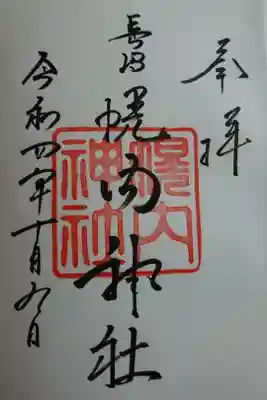 奉拝
長沼
幌内神社
幌内
神社
令和四年十月九日